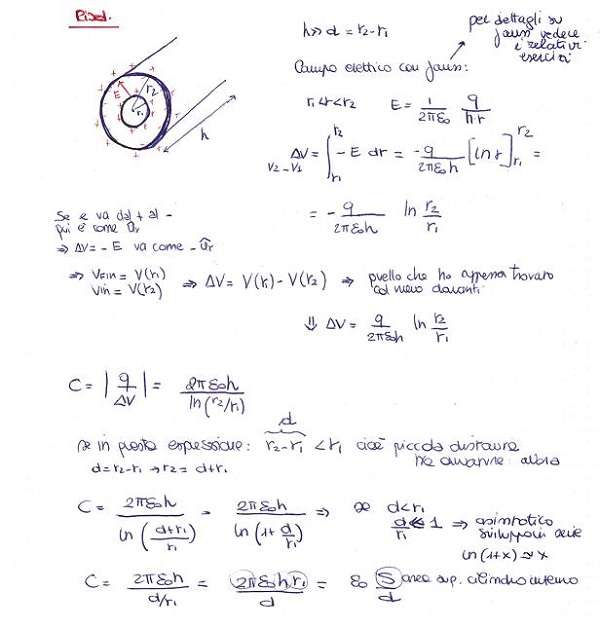 Risol.
h>> d = r2-r1
per dettagli su
Gauss vedere
i relativi
esercizi
Campo elettrico con Gauss:
r1<r<r2 E = 1/2πε0 q/h·r
E
r2
r1
h
ΔV = ∫_{r1}^{r2} -E dr = -q/2πε0h [ln r]_{r1}^{r2} =
V2-V1
= - q/2πε0h ln r2/r1
Se E va dal + al -
qui è come ûr
⇒ ΔV= - E va come -ûr
⇒ Vfin = V(r1) ⇒ ΔV = V(r1) - V(r2) ⇒ quello che ho appena trovato
Vin = V(r2) col meno davanti
⇓ ΔV = q/2πε0h ln r2/r1
C = |q/ΔV| = 2πε0h/ln(r2/r1)
d
se in questa espressione: r2-r1 < r1 cioè piccola distanza
d=r2-r1 → r2= d+r1 allora
C = 2πε0h/ln(d+r1/r1) = 2πε0h/ln(1+d/r1) ⇒ se d<r1
d/r1 << 1 ⇒ asintotico
sviluppo in serie
ln(1+x) ≈ x
C = 2πε0h/d/r1 = 2πε0h r1/d = ε0 S/d area sup. cilindro interno